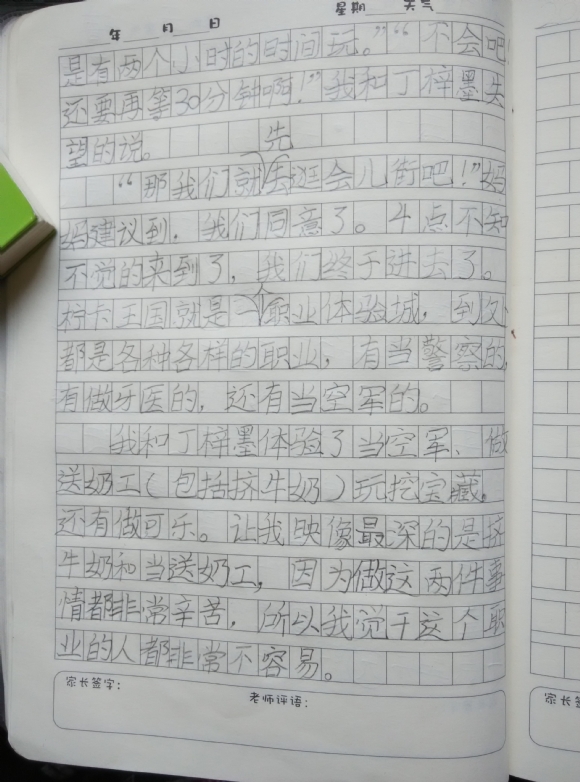 年 月 日 星期 天气
是有两个小时的时间玩。”“不会吧!
还要再等30分钟啊!”我和丁梓墨失
望的说。
先
“那我们就去逛会儿街吧!”妈
妈建议到,我们同意了。4点不知
不觉的来到了,我们终于进去了。
柠卡王国就是一个职业体验城,到处
都是各种各样的职业,有当警察的,
有做牙医的,还有当空军的。
我和丁梓墨体验了当空军、做
送奶工(包括挤牛奶)玩挖宝藏,
还有做可乐。让我映像最深的是挤
牛奶和当送奶工,因为做这两件事
情都非常辛苦,所以我觉干这个职
业的人都非常不容易。
家长签字:
老师评语:
家长签